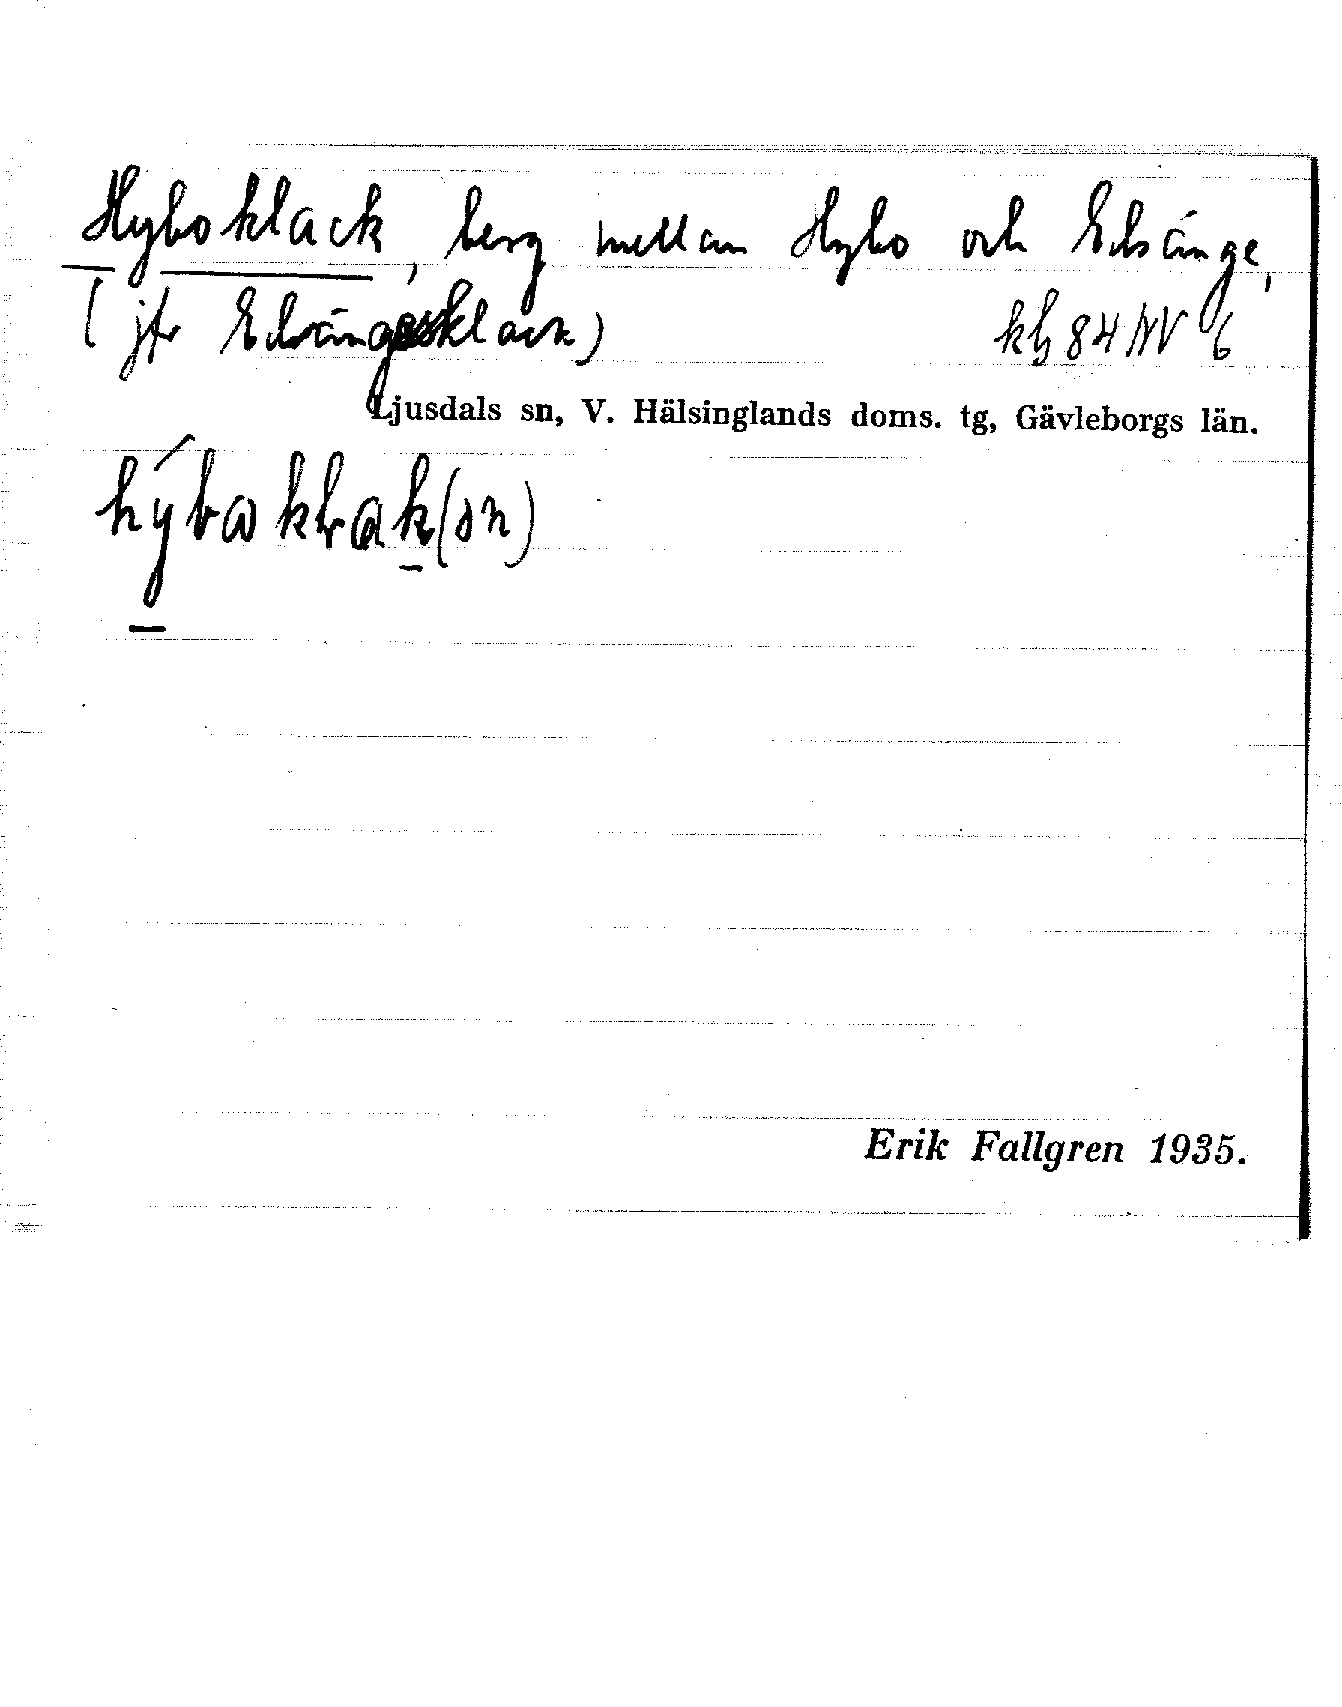 Hyboklack, berg mellan Hybo och Edsänge,
(jfr Edsängesklack) kbl 84 NV b
Ljusdals sn, V. Hälsinglands doms. tg, Gävleborgs län.
hýbaklak(sn)
Erik Fallgren 1935.